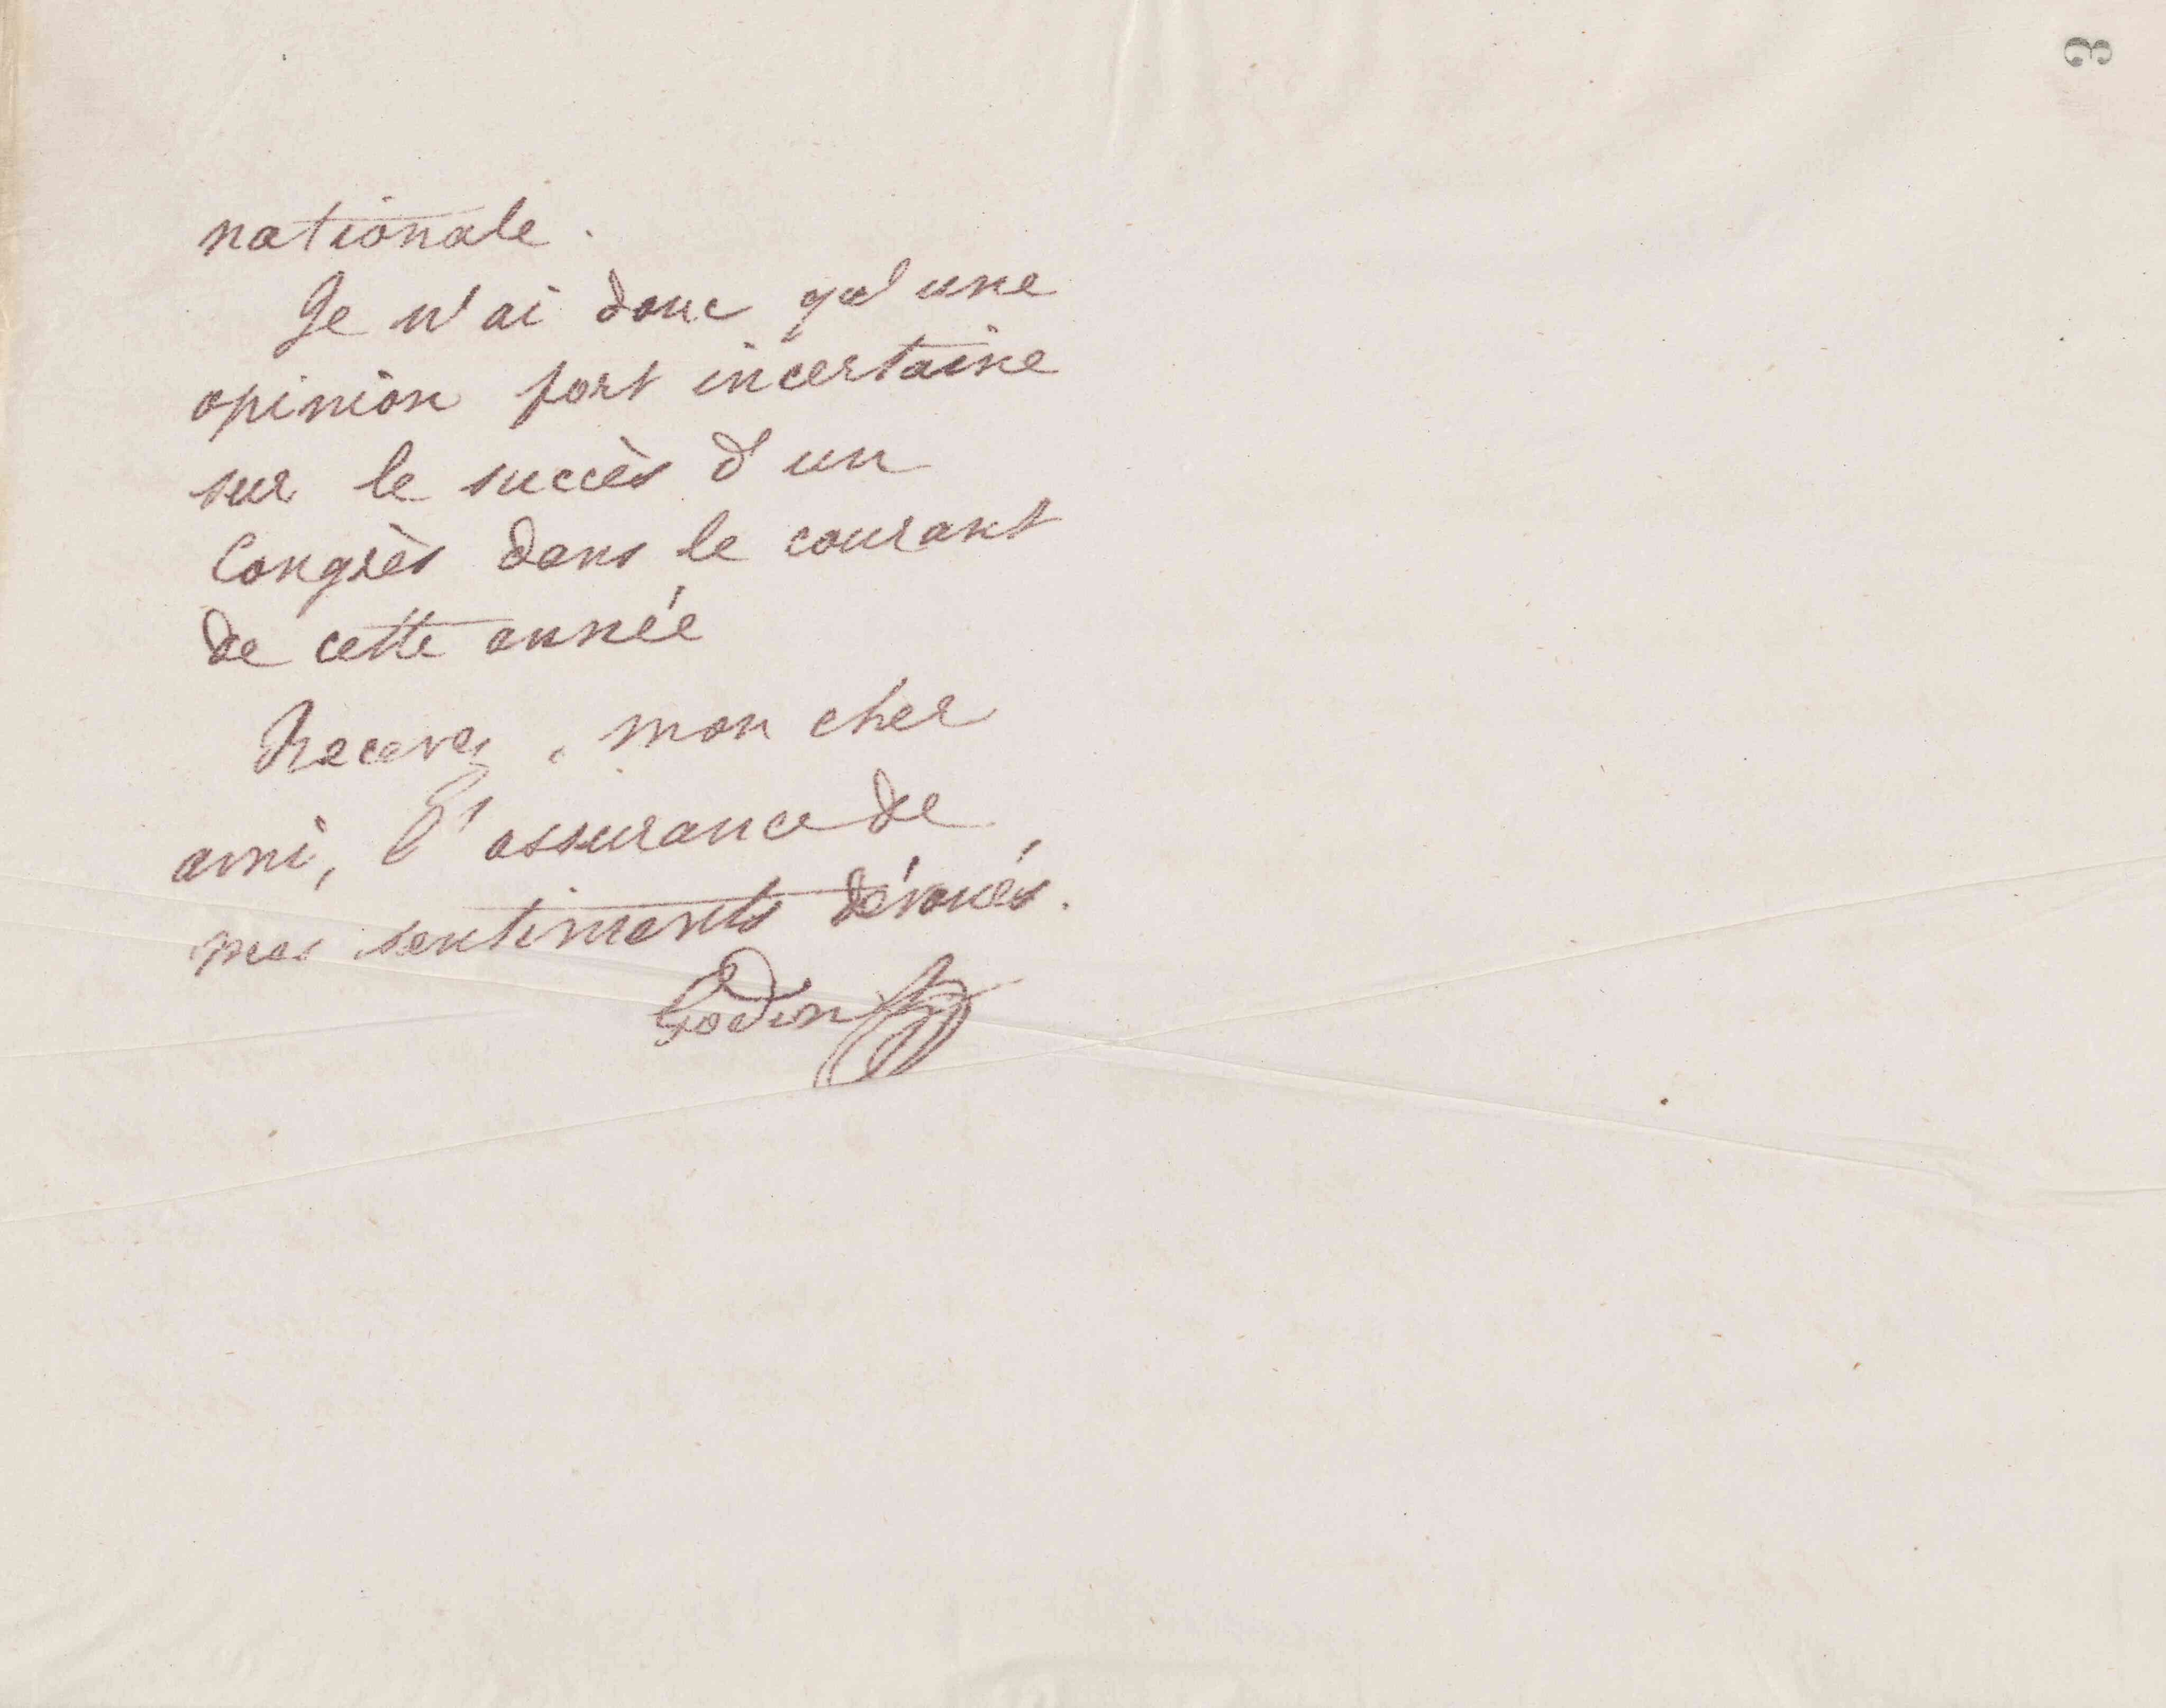 3
nationale.
Je n'ai donc qu'une
opinion fort incertaine
sur le succès d'un
Congrès dans le courant
de cette année
Recevez, mon cher
ami, l'assurance de
mes sentiments dévoués.
Godin